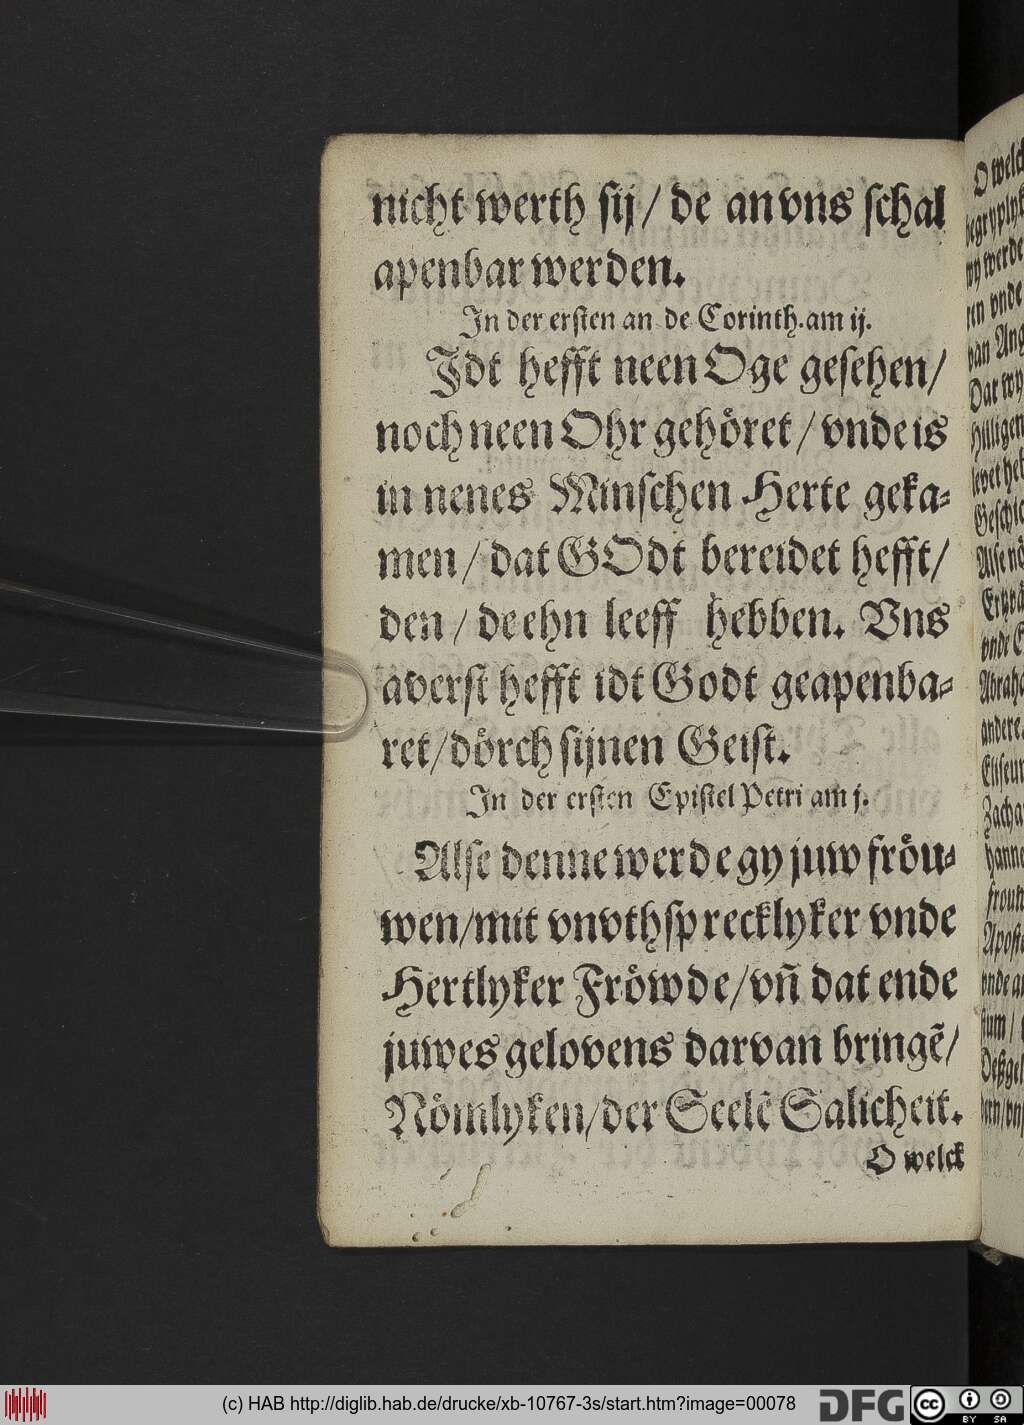 nicht werth sij / de an vns schal
apenbar werden.
In der ersten an de Corinth. am ij.
Idt hefft neen Oge gesehen /
noch neen Ohr gehöret / vnde is
in nenes Minschen Herte geka-
men / dat GOdt bereidet hefft /
den / de ehn leeff hebben. Vns
averst hefft idt Godt geapenba-
ret / dörch sijnen Geist.
In der ersten Epistel Petri am j.
Alse denne werde gy juw fröu-
wen / mit vnvthsprecklyker vnde
Hertlyker Fröwde / vñ dat ende
juwes gelovens darvan bringẽ /
Nömlyken / der Seelẽ Salicheit.
O welck
O welck
begryplyk
wy werde
ren vnde
van Ang
Dat wy
Hilligen
levet heb
Geschic
Alse nö
Ertzvä
vnde E
Abraha
andere
Eliseum
Zachar
hanne
Aposte
vnde an
(c) HAB http://diglib.hab.de/drucke/xb-10767-3s/start.htm?image=00078
DFG
cc
BY SA